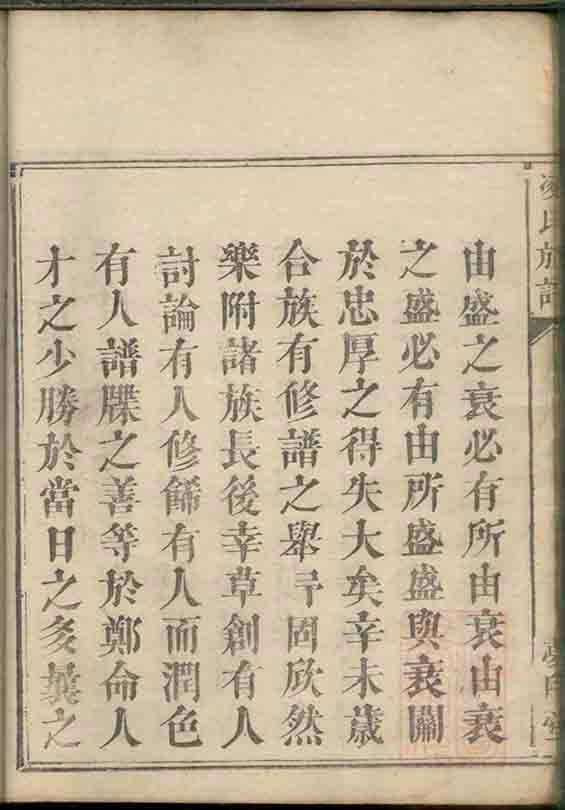 凌氏族譜
由盛之衰必有所由衰由衰
之盛必有由所盛盛與衰關
於忠厚之得失大矣辛未歲
合族有修譜之舉予固欣然
樂附諸族長後幸草創有人
討論有人修餙有人而潤色
有人譜牒之善等於鄭命人
才之少勝於當日之多曩之